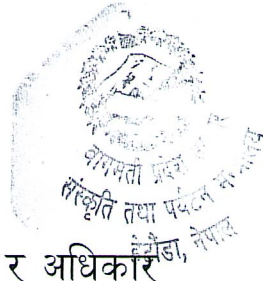 बागमती प्रदेश
संस्कृति तथा पर्यटन
हेटौंडा, नेपाल
र अधिकार